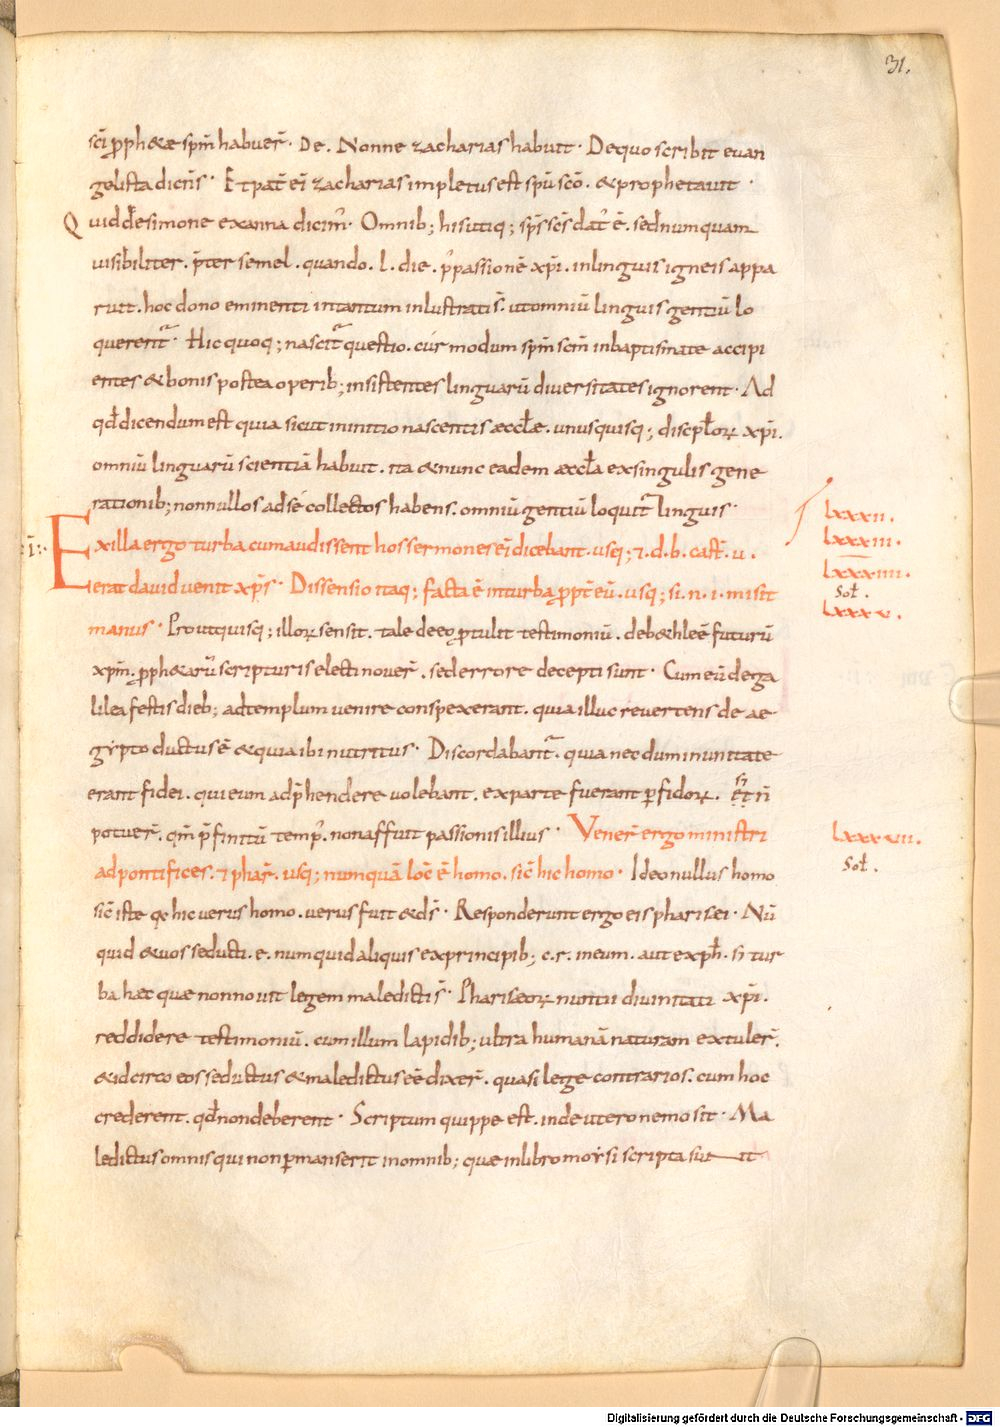 31.
sc̄i ꝓph&ae sp̄m habuer̄. De. Nonne zacharias habuit. De quo scribit euan
gelista dicens. Et pat̄ ei zacharias impletus est sp̄u sc̄o. & prophetauit.
Quid de simone ex anna dicim̄. Omnib; his utiq; sp̄s sc̄s dat̄ ē. sed numquam
uisibiliter. p̄ter semel. quando. l. die. p̄ passionē xp̄i. in linguis igneis appa
ruit. hoc dono eminenti in tantum inlustratis. ut omniū linguis gentiū lo
querent̄. Hic quoq; nascit̄ questio. cur modum sp̄m sc̄m in baptismate accipi
entes & bonis postea operib; insistentes linguarū diuersitates ignorent. Ad
qd̄ dicendum est quia sicut in initio nascentis æccl̄æ. unusquisq; discipl̄oꝝ xp̄i.
omniū linguarū scientiā habuit. ita & nunc eadem æccl̄a ex singulis gene
rationib; nonnullos ad se collectos habens. omniū gentiū loquit̄ linguis.
Ex illa ergo turba cum audissent hos sermones ei dicebant. usq; ⁊. d. b. cast̄. u.
erat dauid uenit xp̄s. Dissensio itaq; facta ē in turba ꝓpt̄ eū. usq; si. n. i. misit
manus. Prout quisq; illoꝝ sensit. tale de eo ꝓtulit testimoniū. deb& hleē futurū
xp̄m. ꝓph&arū scripturis electi nouer̄. sed errore decepti sunt. Cum eū de ga
lilea festis dieb; ad templum uenire conspexerant. quia illuc reuertens de ae
gypto ductus ē & quia ibi nutritus. Discordabant̄. quia necdum in unitate
erant fidei. qui eum adp̄hendere uolebant. ex parte fuerant ꝑfidoꝝ. n̄
potuer̄. qm̄ p̄finitū temp̄. non affuit passionis illius. Vener̄ ergo ministri
ad pontifices. ⁊ phar̄. usq; numquā loc̄ ē homo. sic̄ hic homo. Ideo nullus homo
sic̄ iste qa hic uerus homo. uerus fuit & ds̄. Responderunt ergo eis pharisei. Nū
quid & uos seducti. e. numquid aliquis ex principib; c.r. in eum. aut ex ph̄. s; tur
ba hæc quæ non nouit legem maledicti s̄. Phariseoꝝ nuntii diuinitati xp̄i.
reddidere testimoniū. cum illum lapidib; ultra humanā naturam extuler̄.
& idcirco eos seductus & maledictus eē dixer̄. quasi lege contrarios. cum hoc
crederent. qd̄ non deberent. Scriptum quippe est. inde utero nemo sit. Ma
ledictus omnis qui non ꝑmanserit in omnib; quæ in libro moysi scripta sunt
.i.
lxxxii.
lxxxiii.
lxxxiiii.
Sol̄.
lxxxv.
lxxxvii.
Sol̄.
Digitalisierung gefördert durch die Deutsche Forschungsgemeinschaft - DFG